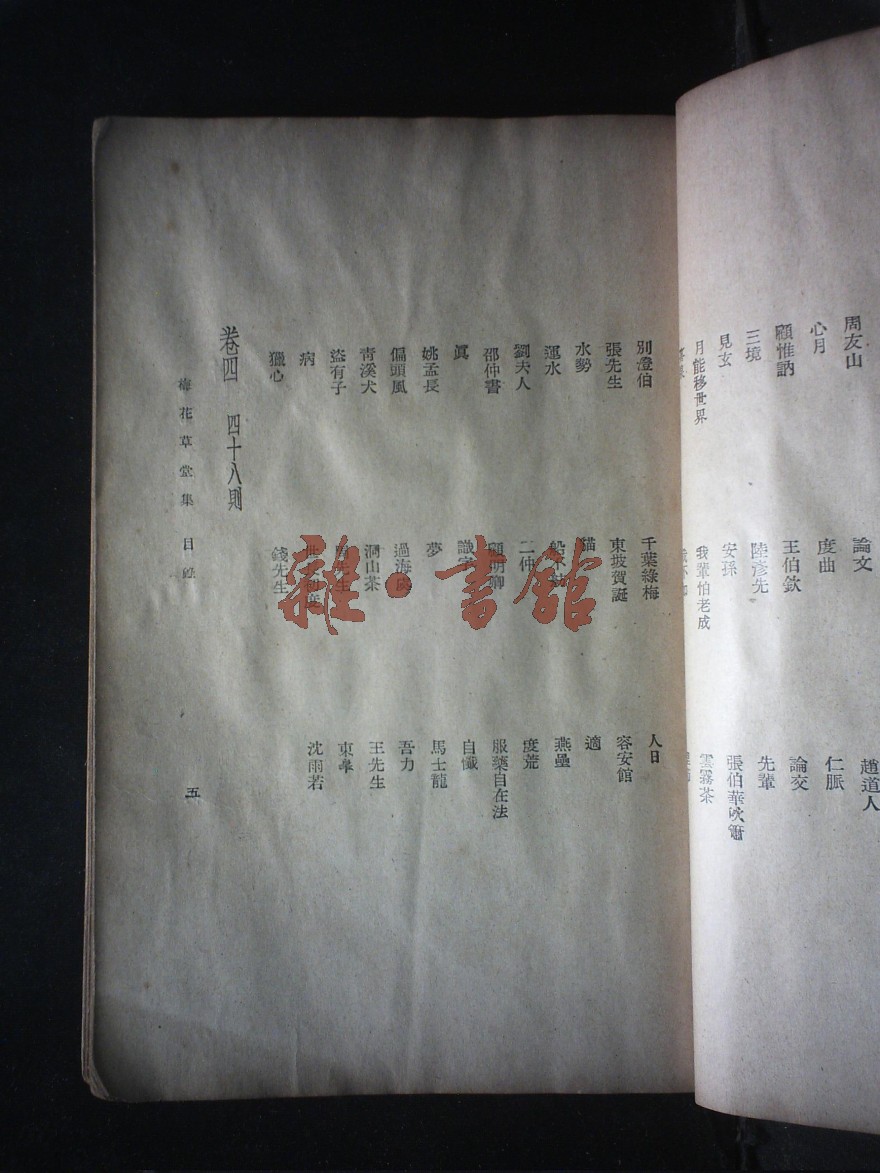 周友山　論文　趙道人
心月　度曲　仁脈
顧惟訥　王伯欽　論交
三境　陸彥先　先輩
見玄　安孫　張伯華吹簫
月能移世界　我輩怕老成　雲霧茶
別澄伯　千葉綠梅　人日
張先生　東坡賀誕　容安館
水勢　貓　適
運水　燕壘
劉夫人　二仲　度荒
邵仲書　顧明卿　服藥自在法
眞　自懺
姚孟長　夢　馬士龍
偏頭風　過海　吾力
靑溪犬　洞山茶　王先生
盜有子　先生　東皋
病　沈雨若
獵心　錢先生
卷四　四十八則
梅花草堂集　目錄　五
雜·書館